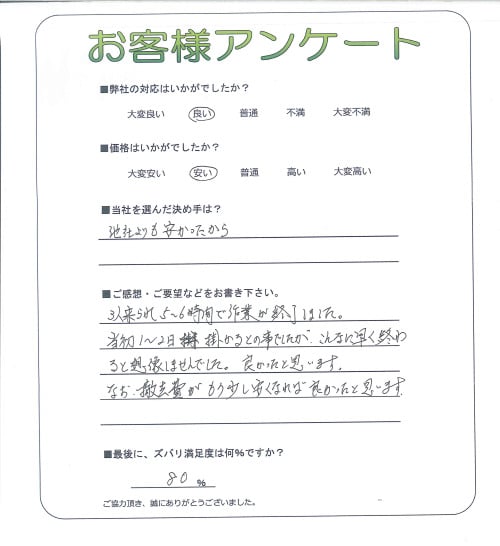 お客様アンケート
■弊社の対応はいかがでしたか?
大変良い 良い 普通 不満 大変不満
■価格はいかがでしたか?
大変安い 安い 普通 高い 大変高い
■当社を選んだ決め手は?
他社よりも安かったから
■ご感想・ご要望などをお書き下さい。
3人来られ、5～6時間で作業が終了しました。
当初1～2日 掛かるとの事でしたが、こんなに早く終わ
ると想像しませんでした。良かったと思います。
なお、撤去費がもう少し安くなれば良かったと思います。
■最後に、ズバリ満足度は何%ですか?
80 %
ご協力頂き、誠にありがとうございました。